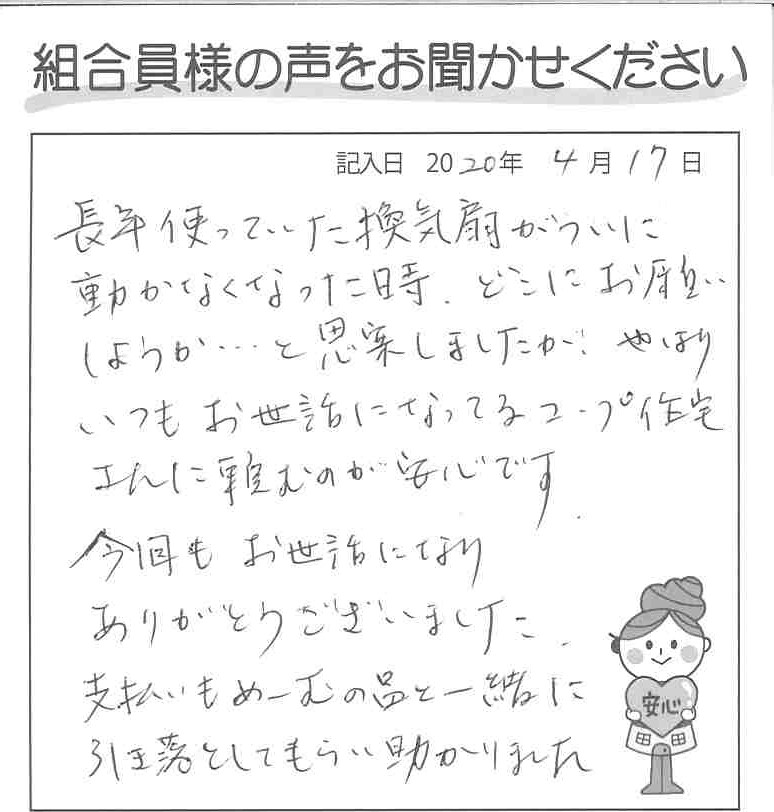 組合員様の声をお聞かせください
記入日 2020年 4月17日
長年使っていた換気扇がついに
動かなくなった時、どこにお願い
しようか…と思案しましたが、やはり
いつもお世話になってるコープ住宅
さんに頼むのが安心です。
今回もお世話になり
ありがとうございました。
支払いもめーむの品と一緒に
引き落としてもらい助かりました
安心